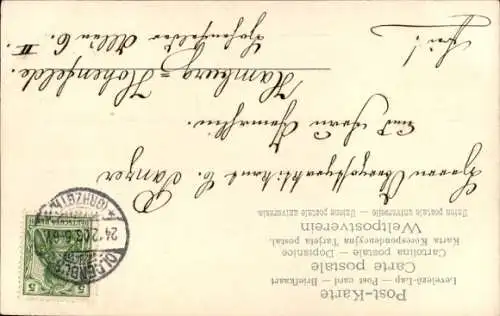 Post-Karte
Levelező-Lap — Post card — Briefkaart
Carte postale
Cartolina postale — Dopisnice
Karta Korespondencyjna Tarjeta postal.
Weltpostverein
Union postale universelle — Unione postale universale
Herrn
C.
und Frau Gemahlin
Hamburg = Hohenfelde.
Hohenfelder Allee 6. II.
Frei!
OLDENBURG
24.12.03. 6-
(GRHZGTH.)
5 5